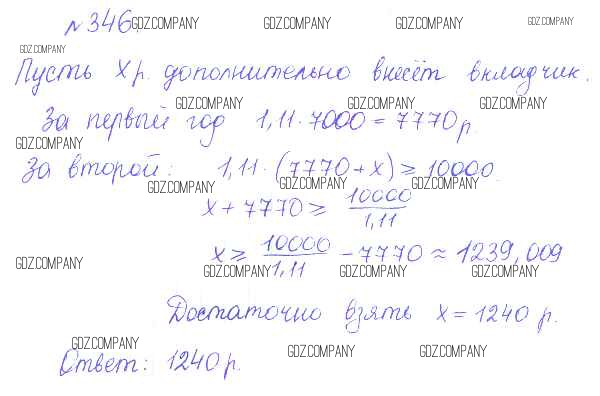 №346. GDZ.COMPANY GDZ.COMPANY GDZ.COMPANY GDZ.COMPANY
GDZ.COMPANY
Пусть х р. дополнительно внесёт вкладчик.
GDZ.COMPANY GDZ.COMPANY GDZ.COMPANY
За первый год 1,11·7000=7770р.
GDZ.COMPANY
За второй: 1,11·(7770+х)≥10000
GDZ.COMPANY GDZ.COMPANY GDZ.COMPANY
х+7770≥ 10000/1,11
х≥ 10000/1,11 -7770≈1239,009
GDZ.COMPANY GDZ.COMPANY GDZ.COMPANY GDZ.COMPANY
Достаточно взять х=1240 р.
GDZ.COMPANY GDZ.COMPANY GDZ.COMPANY
Ответ: 1240р.